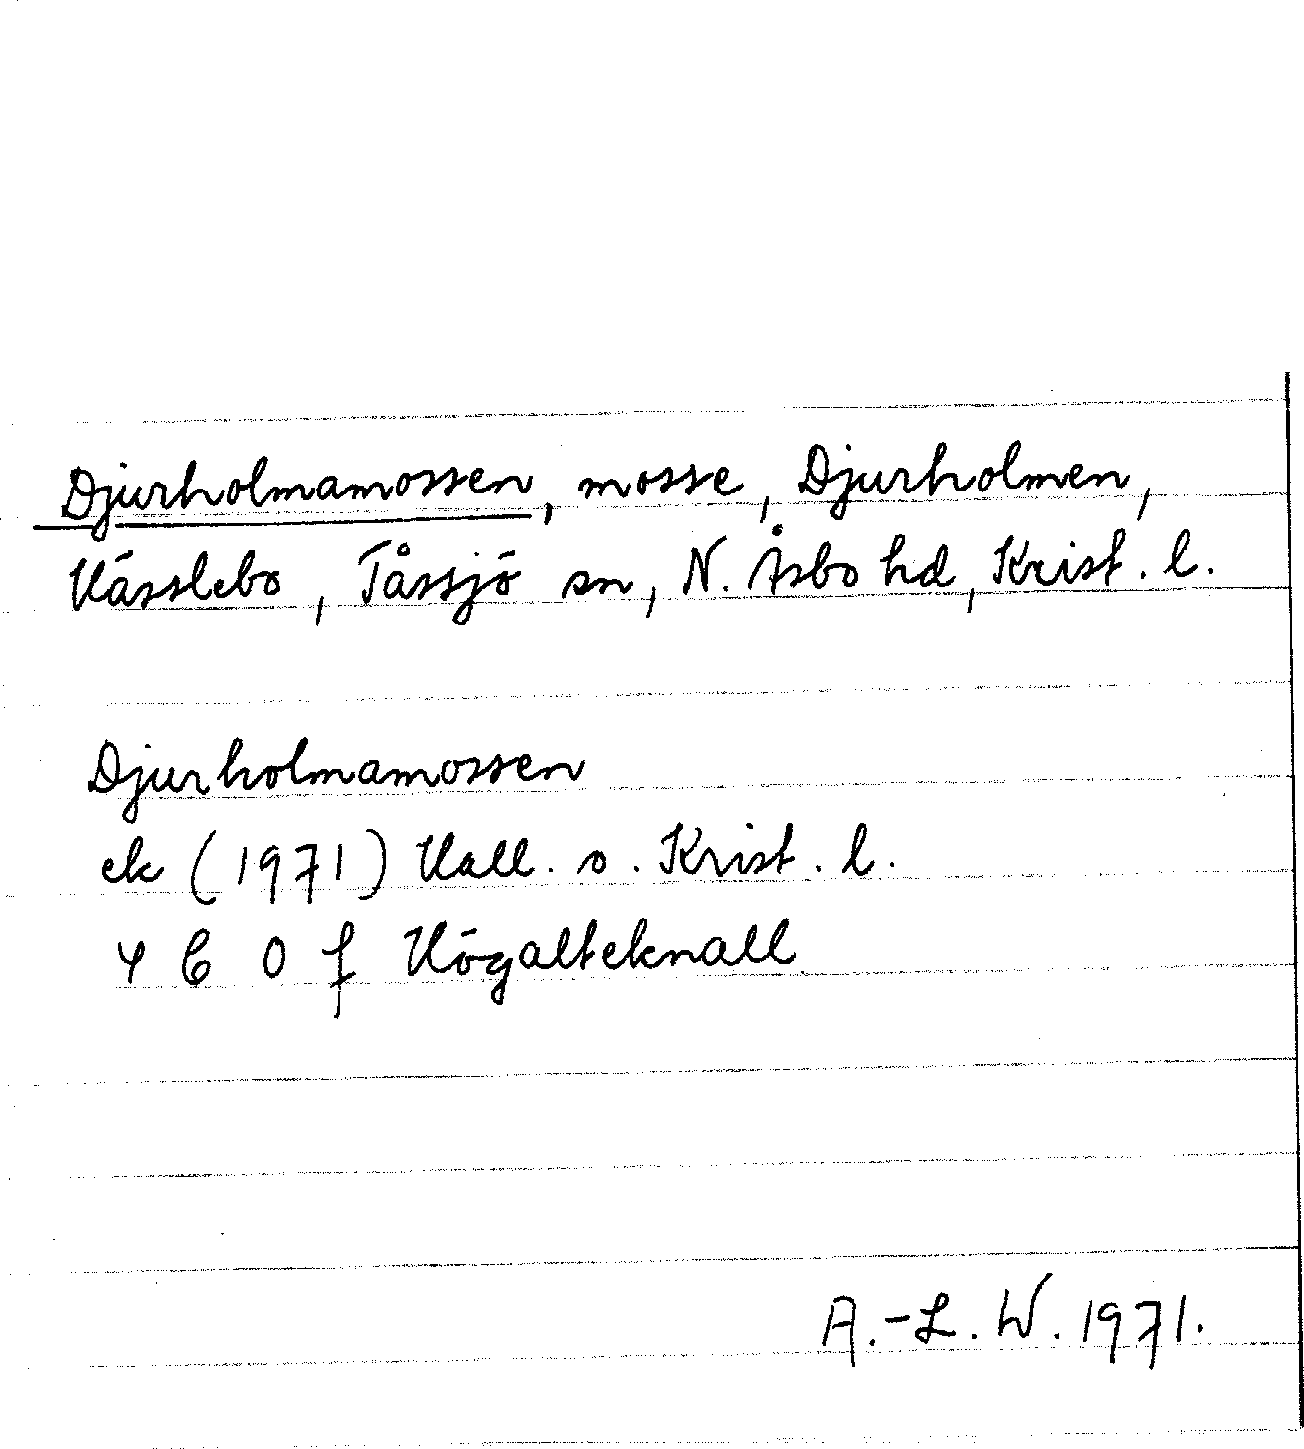 Djurholmamossen, mosse, Djurholmen,
Hässlebo, Tåssjö sn, N. Åsbo hd, Krist. l.
Djurholmamossen
ek (1971) Hall. o. Krist. l.
4 C 0 f Högalteknall
A.-L. W. 1971.